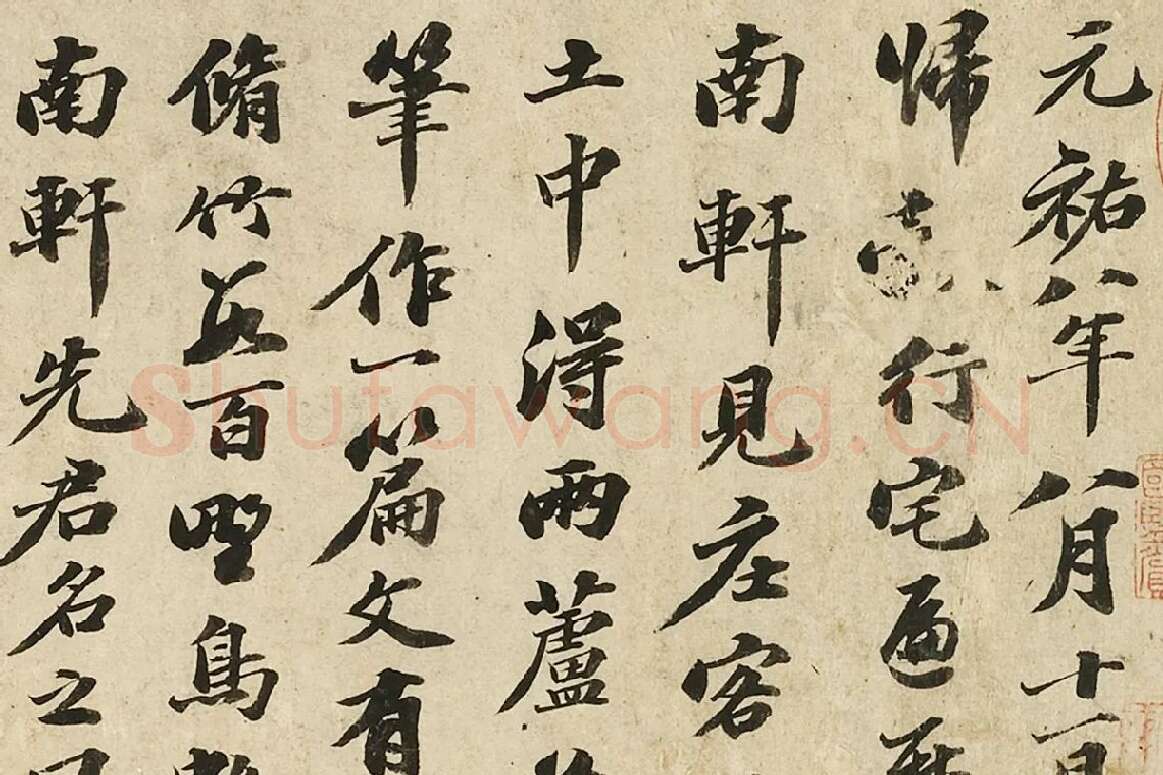 元祐八年八月十一日
歸行宅遍歷
南軒見庄客
土中得兩蘆
筆作一篇文有
脩竹數百野鳥
南軒先君名之曰
Shufawang.CN